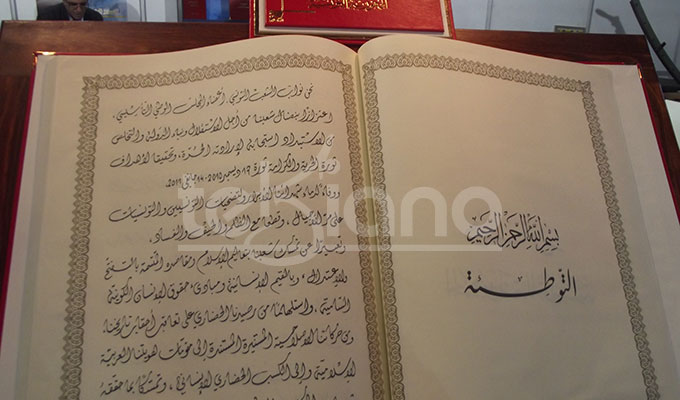 بسم الله الرحمن الرحيم
التوطئة
نحن نواب الشعب التونسي، أعضاء المجلس الوطني التأسيسي،
اعتزازا بنضال شعبنا من أجل الاستقلال وبناء الدولة والتخلص
من الاستبداد استجابة لإرادته الحرّة، وتحقيقا لأهداف
ثورة الحرية والكرامة ثورة ١٧ ديسمبر ٢٠١٠-١٤ جانفي ٢٠١١،
ووفاء لدماء شهدائنا الأبرار ولتضحيات التونسيين والتونسيات
على مرّ الأجيال، وقطعا مع الظلم والحيف والفساد،
وتعبيرا عن تمسك شعبنا بتعاليم الإسلام ومقاصده المتّسمة بالتفتّح
والاعتدال، وبالقيم الإنسانية ومبادئ حقوق الإنسان الكونية
السامية، واستلهاما من رصيدنا الحضاري على تعاقب أحقاب تاريخنا،
ومن حركاتنا الإصلاحية المستنيرة المستندة إلى مقومات هويتنا العربية
الإسلامية وإلى الكسب الحضاري الإنساني، وتمسّكا بما حققه